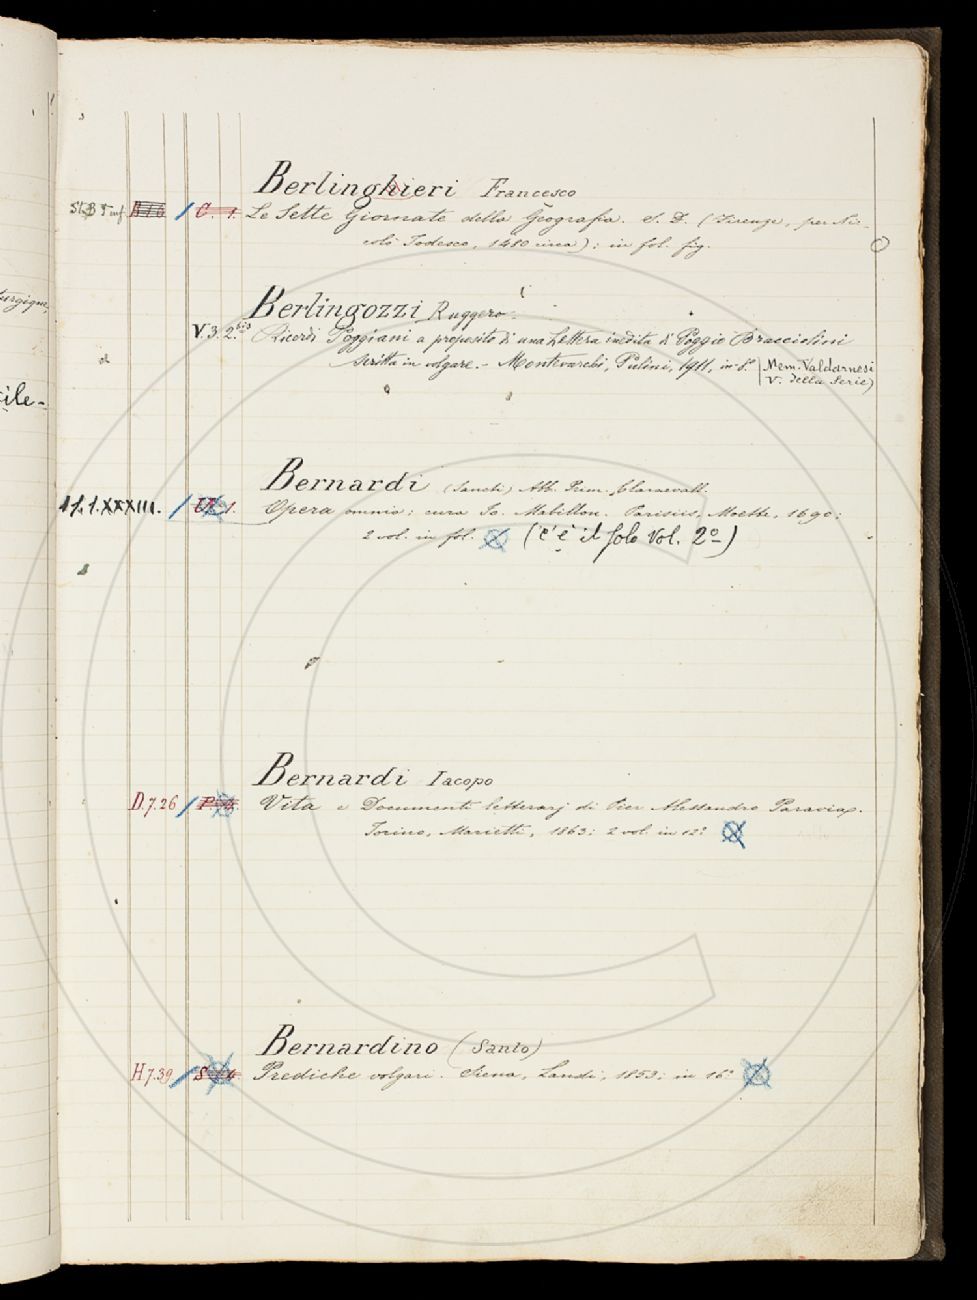 Berlinghieri Francesco
C. 1. Le Sette Giornate della Geografia. S. D. (Firenze, per Ni-
colò Todesco, 1480 circa); in fol. fig.
Berlingozzi Ruggero.
V.3.2.bis Ricordi Poggiani a proposito di una Lettera inedita di Poggio Bracciolini
scritta in volgare. - Montevarchi, Pulini, 1911, in-8° (Mem. Valdarnesi
V. della Serie)
Bernardi (Sancti) Abb. Prim. Claraevall.
1. Opera omnia; cura Io. Mabillon. Parisiis, 1690;
2 vol. in fol. (c'è il solo vol. 2°)
Bernardi Iacopo
D.7.26 Vita e Documenti letterarj di Pier Alessandro Paravia.
Torino, Marietti, 1863; 2 vol. in 12°
Bernardino (Santo)
H.7.39 Prediche volgari. Siena, Landi, 1853; in 16°
ile-